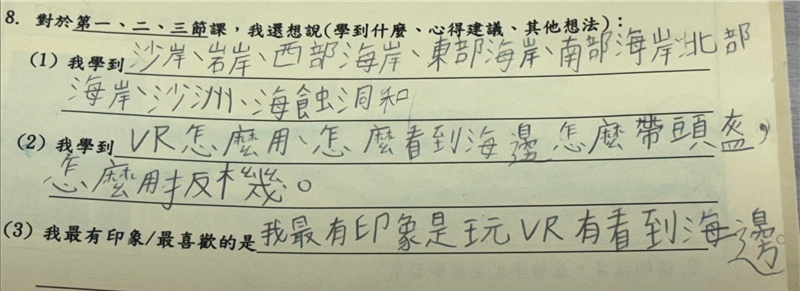 8. 對於第一、二、三節課，我還想說(學到什麼、心得建議、其他想法)：
(1) 我學到沙岸、岩岸、西部海岸、東部海岸、南部海岸、北部
海岸、沙洲、海蝕洞和
(2) 我學到 VR怎麼用、怎麼看到海邊怎麼帶頭盔，
怎麼用扳機。
(3) 我最有印象/最喜歡的是我最有印象是玩VR有看到海邊。